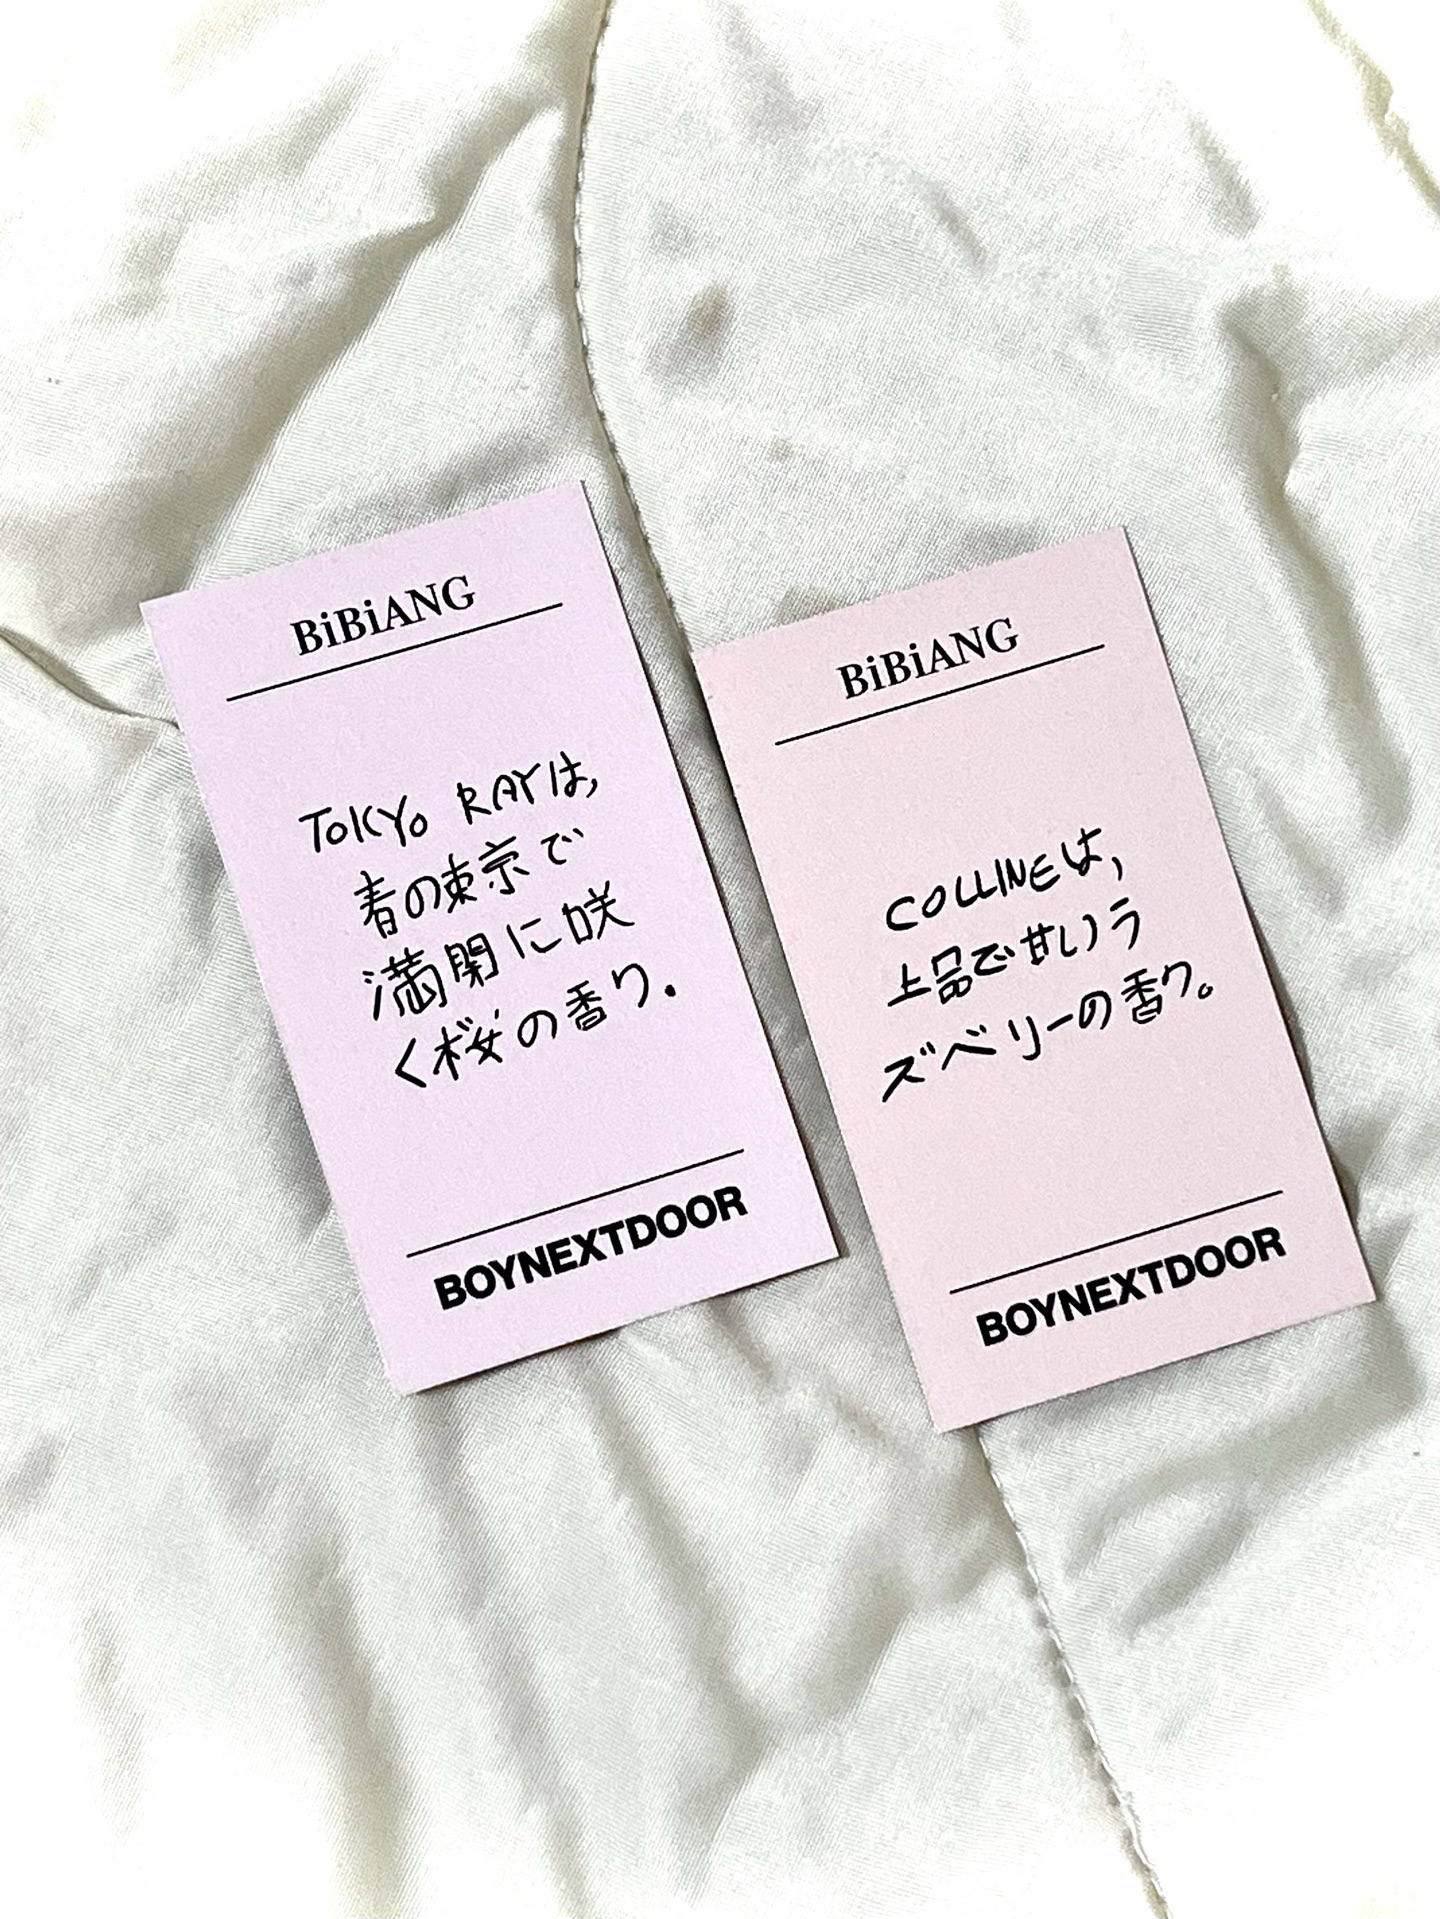 BiBiANG
TOKYO RAYは,
春の東京で
満開に咲
く桜の香り.
BOYNEXTDOOR
BiBiANG
COLLINEは,
上品で甘いラ
ズベリーの香り。
BOYNEXTDOOR